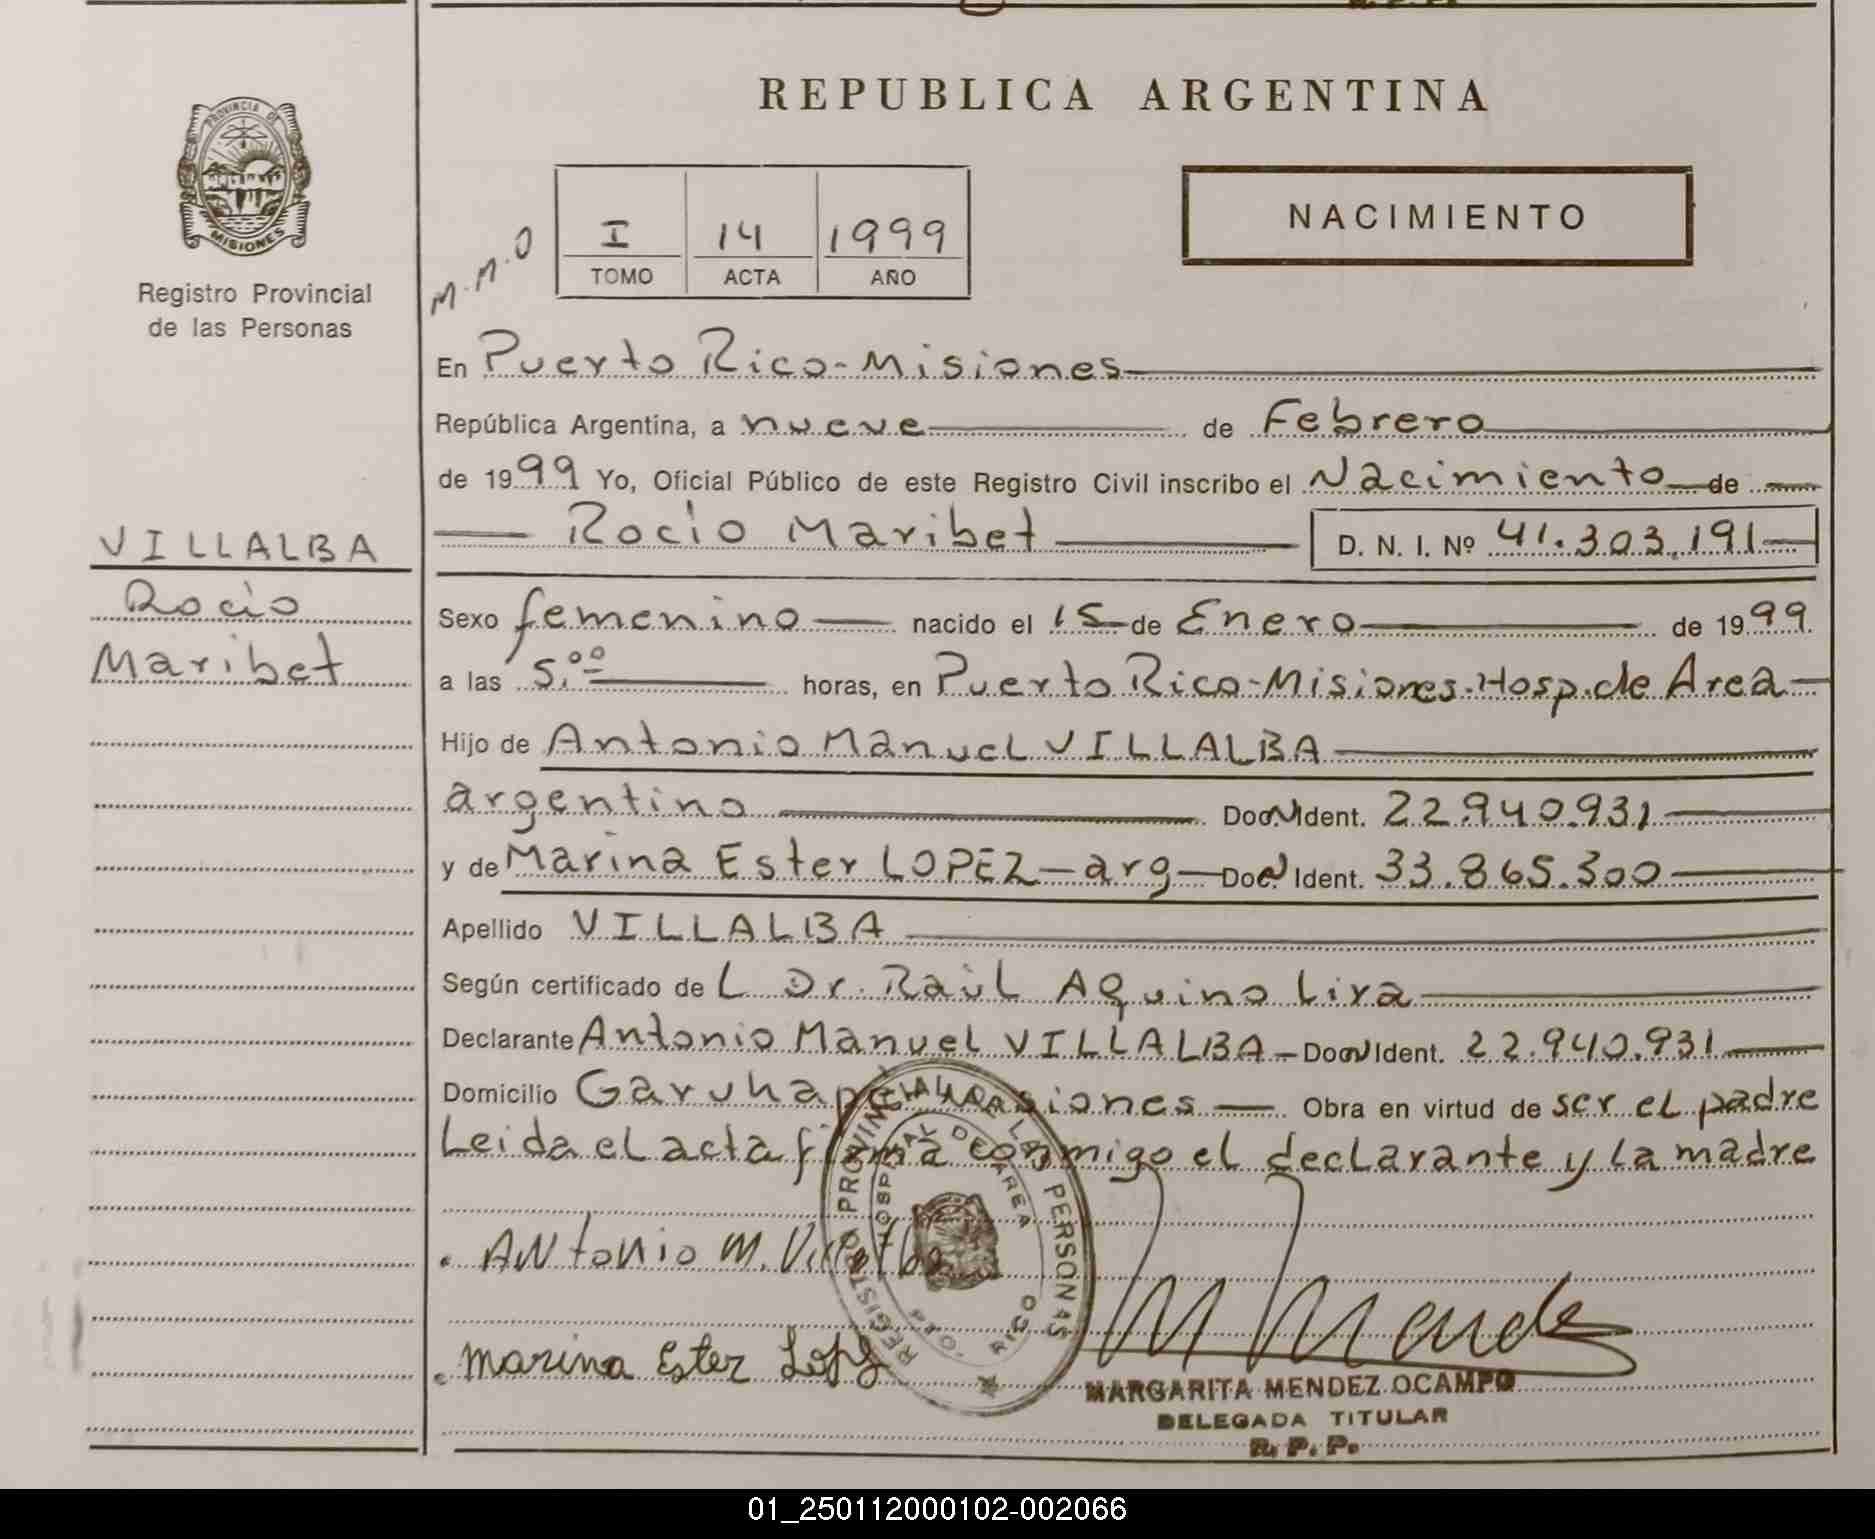 REPUBLICA ARGENTINA
PROVINCIA DE
MISIONES
Registro Provincial
de las Personas
M.M.O
I 14 1999
TOMO ACTA AÑO
NACIMIENTO
VILLALBA
Rocio
Maribet
En Puerto Rico-Misiones
República Argentina, a nueve de Febrero
de 1999 Yo, Oficial Público de este Registro Civil inscribo el Nacimiento de
Rocio Maribet D. N. I. Nº 41.303.191
Sexo femenino nacido el 15 de Enero de 1999
a las 5.00 horas, en Puerto Rico-Misiones-Hosp.de Area
Hijo de Antonio Manuel VILLALBA
argentino Doc.N Ident. 22.940.931
y de Marina Ester LOPEZ-arg- Doc.N Ident. 33.865.300
Apellido VILLALBA
Según certificado de L Dr. Raúl Aquino Lira
Declarante Antonio Manuel VILLALBA - Doc.N Ident. 22.940.931
Domicilio Garuhapé Misiones Obra en virtud de ser el padre
Leida el acta firma conmigo el declarante y la madre
REGISTRO PROVINCIAL DE LAS PERSONAS
HOSPITAL DE AREA
PTO. RICO
Antonio M. Villalba
Marina Ester Lopez
M Mendez
MARGARITA MENDEZ OCAMPO
DELEGADA TITULAR
R. P. P.
01_250112000102-002066